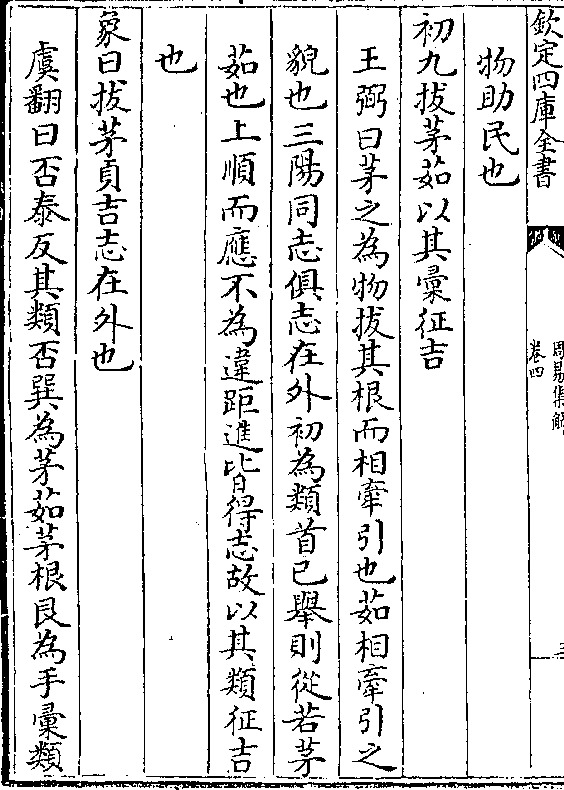 欽定四庫全書
周易集解
卷四
物助民也
初九拔茅茹以其彙征吉
王弼曰茅之為物拔其根而相牽引也茹相牽引之
貌也三陽同志俱志在外初為類首已舉則從若茅
茹也上順而應不為違距進皆得志故以其類征吉
也
象曰拔茅貞吉志在外也
虞翻曰否泰反其類否巽為茅茹茅根艮為手彙類